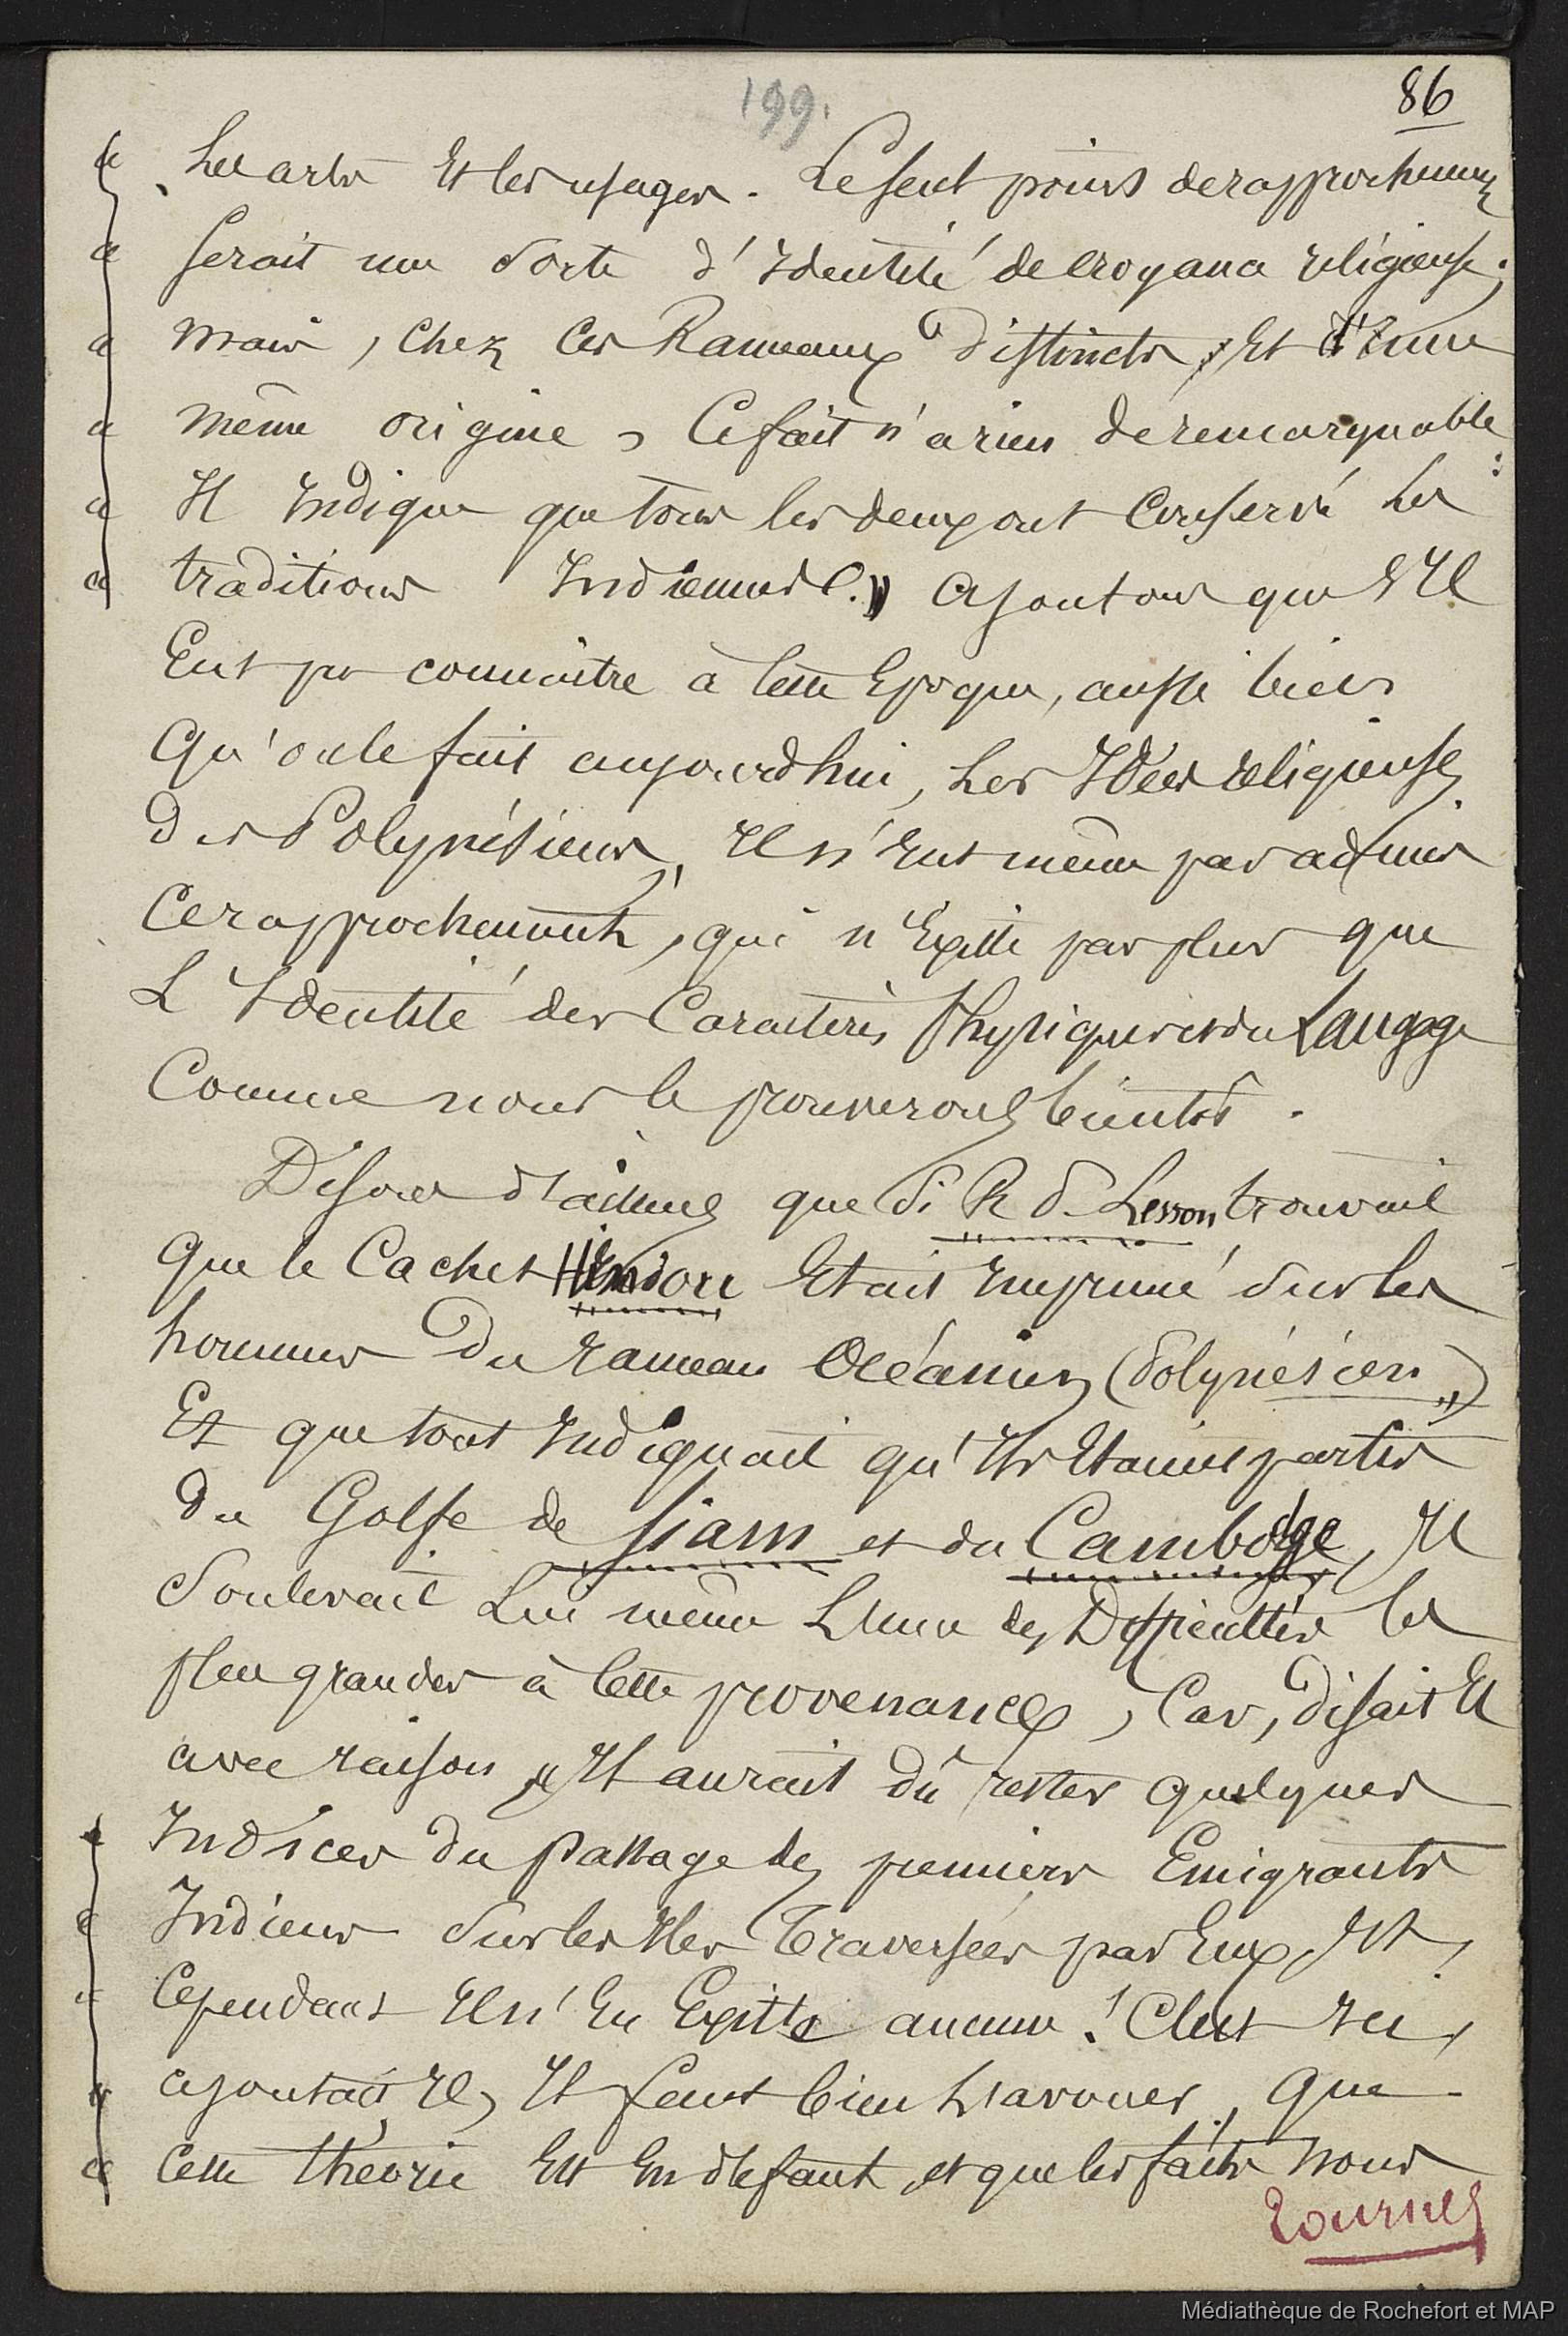 199.
86
« Les arts et les usages. Le seul point de rapprochement
« serait une sorte d'Identité de croyance religieuse;
« mais, chez ces Rameaux distincts, et d'une
« même origine, ce fait n'a rien de remarquable:
« Il Indique que tous les deux ont conservé les
« traditions Indiennes.» Ajoutons que s'Il
Eut pu connaître à cette Epoque, aussi bien
Qu'on le fait aujourd'hui, les Idées religieuses
des Polynésiens, Il n'Eut même pas admis
Ce rapprochement, qui n'Existe pas plus que
L'Identité des Caractères physiques et du Langage
Comme nous le prouverons bientôt.
Disons d'ailleurs que si R. P. Lesson trouvait
Que le Cachet Hindou Etait Imprimé sur les
hommes du rameau Océanien (Polynésien)
Et que tout Indiquait qu'Ils Etaient partis
du Golfe de Siam et du Cambodge, Il
Soulevait Lui même L'Une des Difficultés les
plus grandes à cette provenance, Car, disait Il
avec raison « Il aurait dû rester quelques
« Indices du passage des premiers Emigrants
« Indiens sur les Iles traversées par Eux, Et,
« Cependant Il n'En Existe aucun! C'Est Ici,
« ajoutait Il, Il faut bien L'avouer, que
« cette théorie Est En défaut, et que les faits nous
Tournez
Médiathèque de Rochefort et MAP